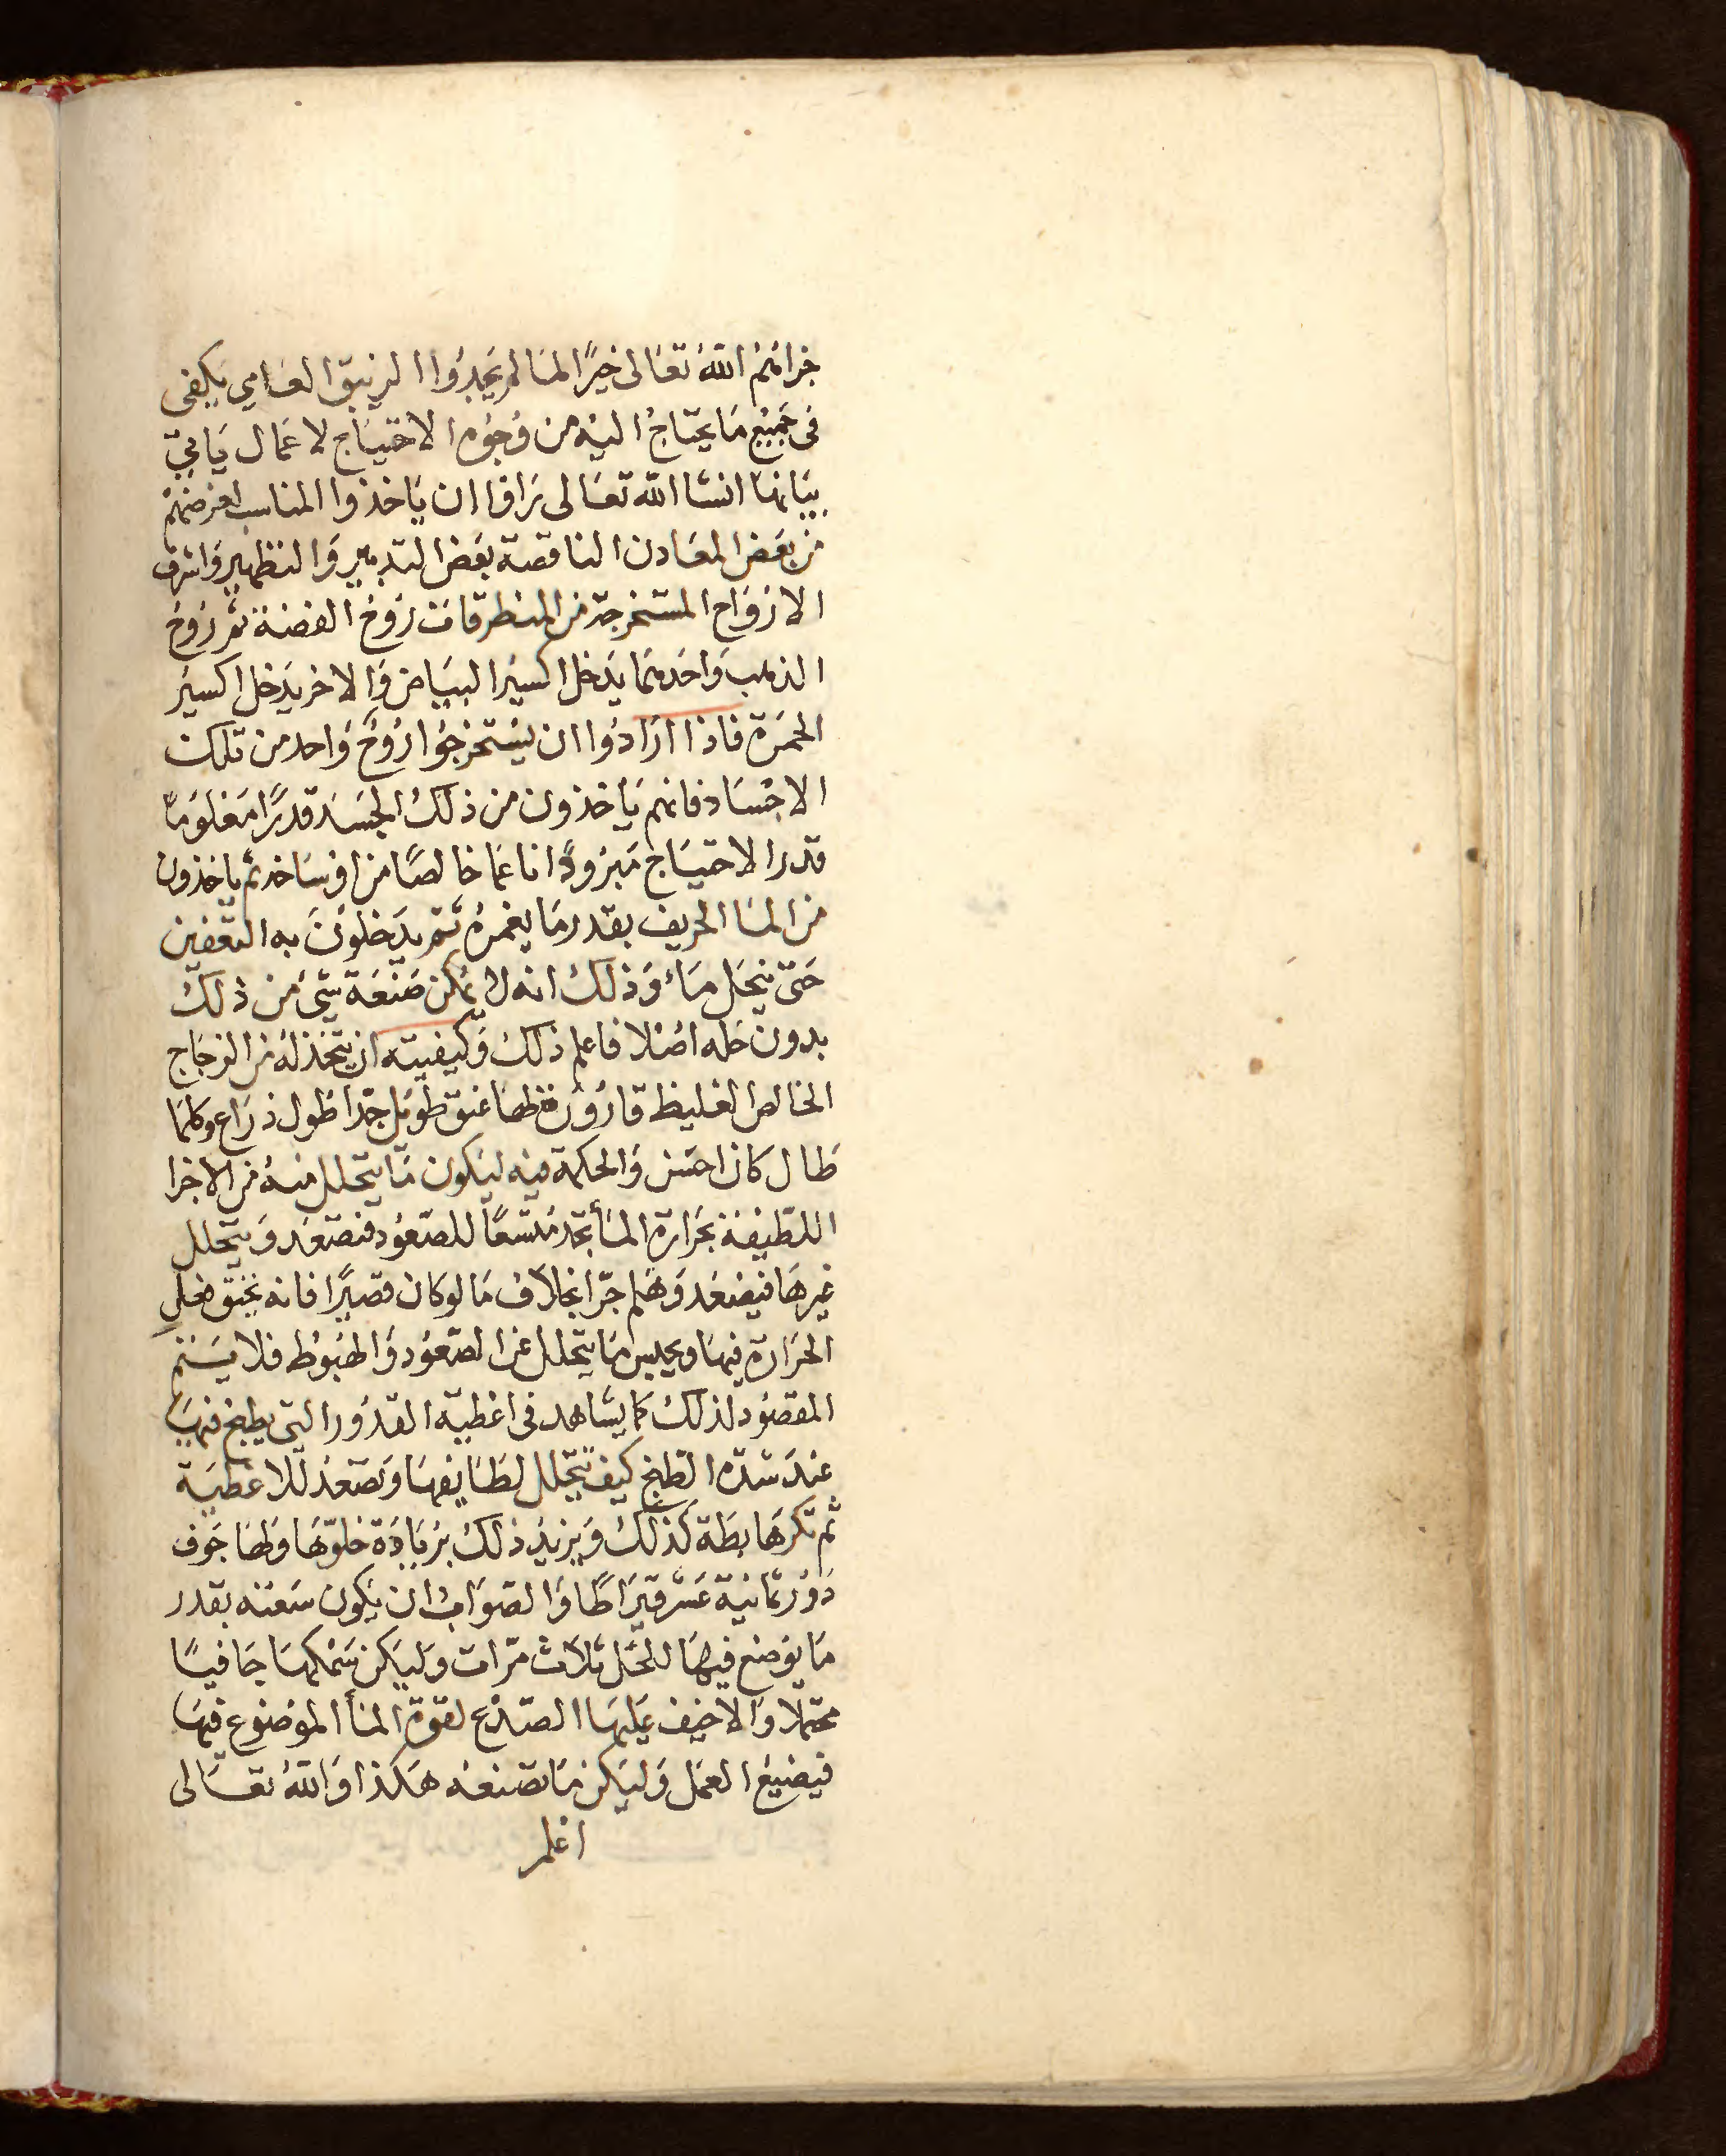 جزاهم الله تعالى خيرًا لما لم يجدوا الزيبق العامي يكفى
فى جميع ما يحتاج اليه من وجوه الاحتياج لاعمال ياتى
بيانها انشا الله تعالى راوا ان ياخذوا المناسب لغرضهم
من بعض المعادن الناقصة بعض التدبير والتطهير واشرف
الارواح المستخرجة من المنطرقات روح الفضة ثم روح
الذهب واحدهما يدخل اكسير البياض والاخر يدخل اكسير
الحمرة فاذا ارادوا ان يستخرجوا روح واحد من تلك
الاجساد فانهم ياخذون من ذلك الجسد قدرًا معلومًا
قدر الاحتياج مبرودًا ناعما خالصًا من اوساخه ثم ياخذون
من الما الحريف بقدر ما يغمره ثم يدخلون به التعفين
حتى ينحل ماء وذلك انه لا يمكن صنعة شئ من ذلك
بدون حله اصلا فاعلم ذلك وكيفيته ان يتخذ له من الزجاج
الخالص الغليظ قارورة لها عنق طويل جدًا طول ذراع وكلما
طال كان احسن والحكمة فيه ليكون ما يتحلل منه من الاجزا
اللطيفة بحرارة الماء تجد متسعًا للصعود فتصعد ويتحلل
غيرها فيصعد وهلم جرّا بخلاف ما لو كان قصيرًا فانه يختنق محل
الحرارة فيها ويحبس ما يتحلل عن الصعود والهبوط فلا يستتم
المقصود لذلك كما يشاهد فى اغطية القدور التى يطبخ فيها
عند شدة الطبخ كيف يتحلل لطايفها وتصعد للاغطية
ثم تكر هابطة كذلك ويزيد ذلك بزيادة خلوّها ولها جوف
دور ثمانية عشر قيراطًا والصواب ان يكون سعته بقدر
ما يوضع فيها للحل ثلاث مرّات وليكن سمكها جافيًا
محتملا والا خيف عليها الصدع لقوة الماء الموضوع فيها
فيضيع العمل وليكن ما تصنعه هكذا والله تعالى
اعلم